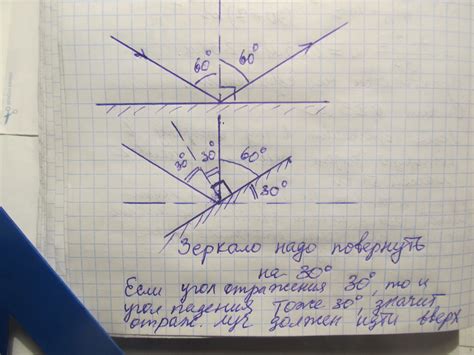 60° 60°
30° 30° 60°
30°
Зеркало надо повернуть
на 30°
Если угол отражения 30°, то и
угол падения тоже 30°, значит
отраж. луч должен идти вверх